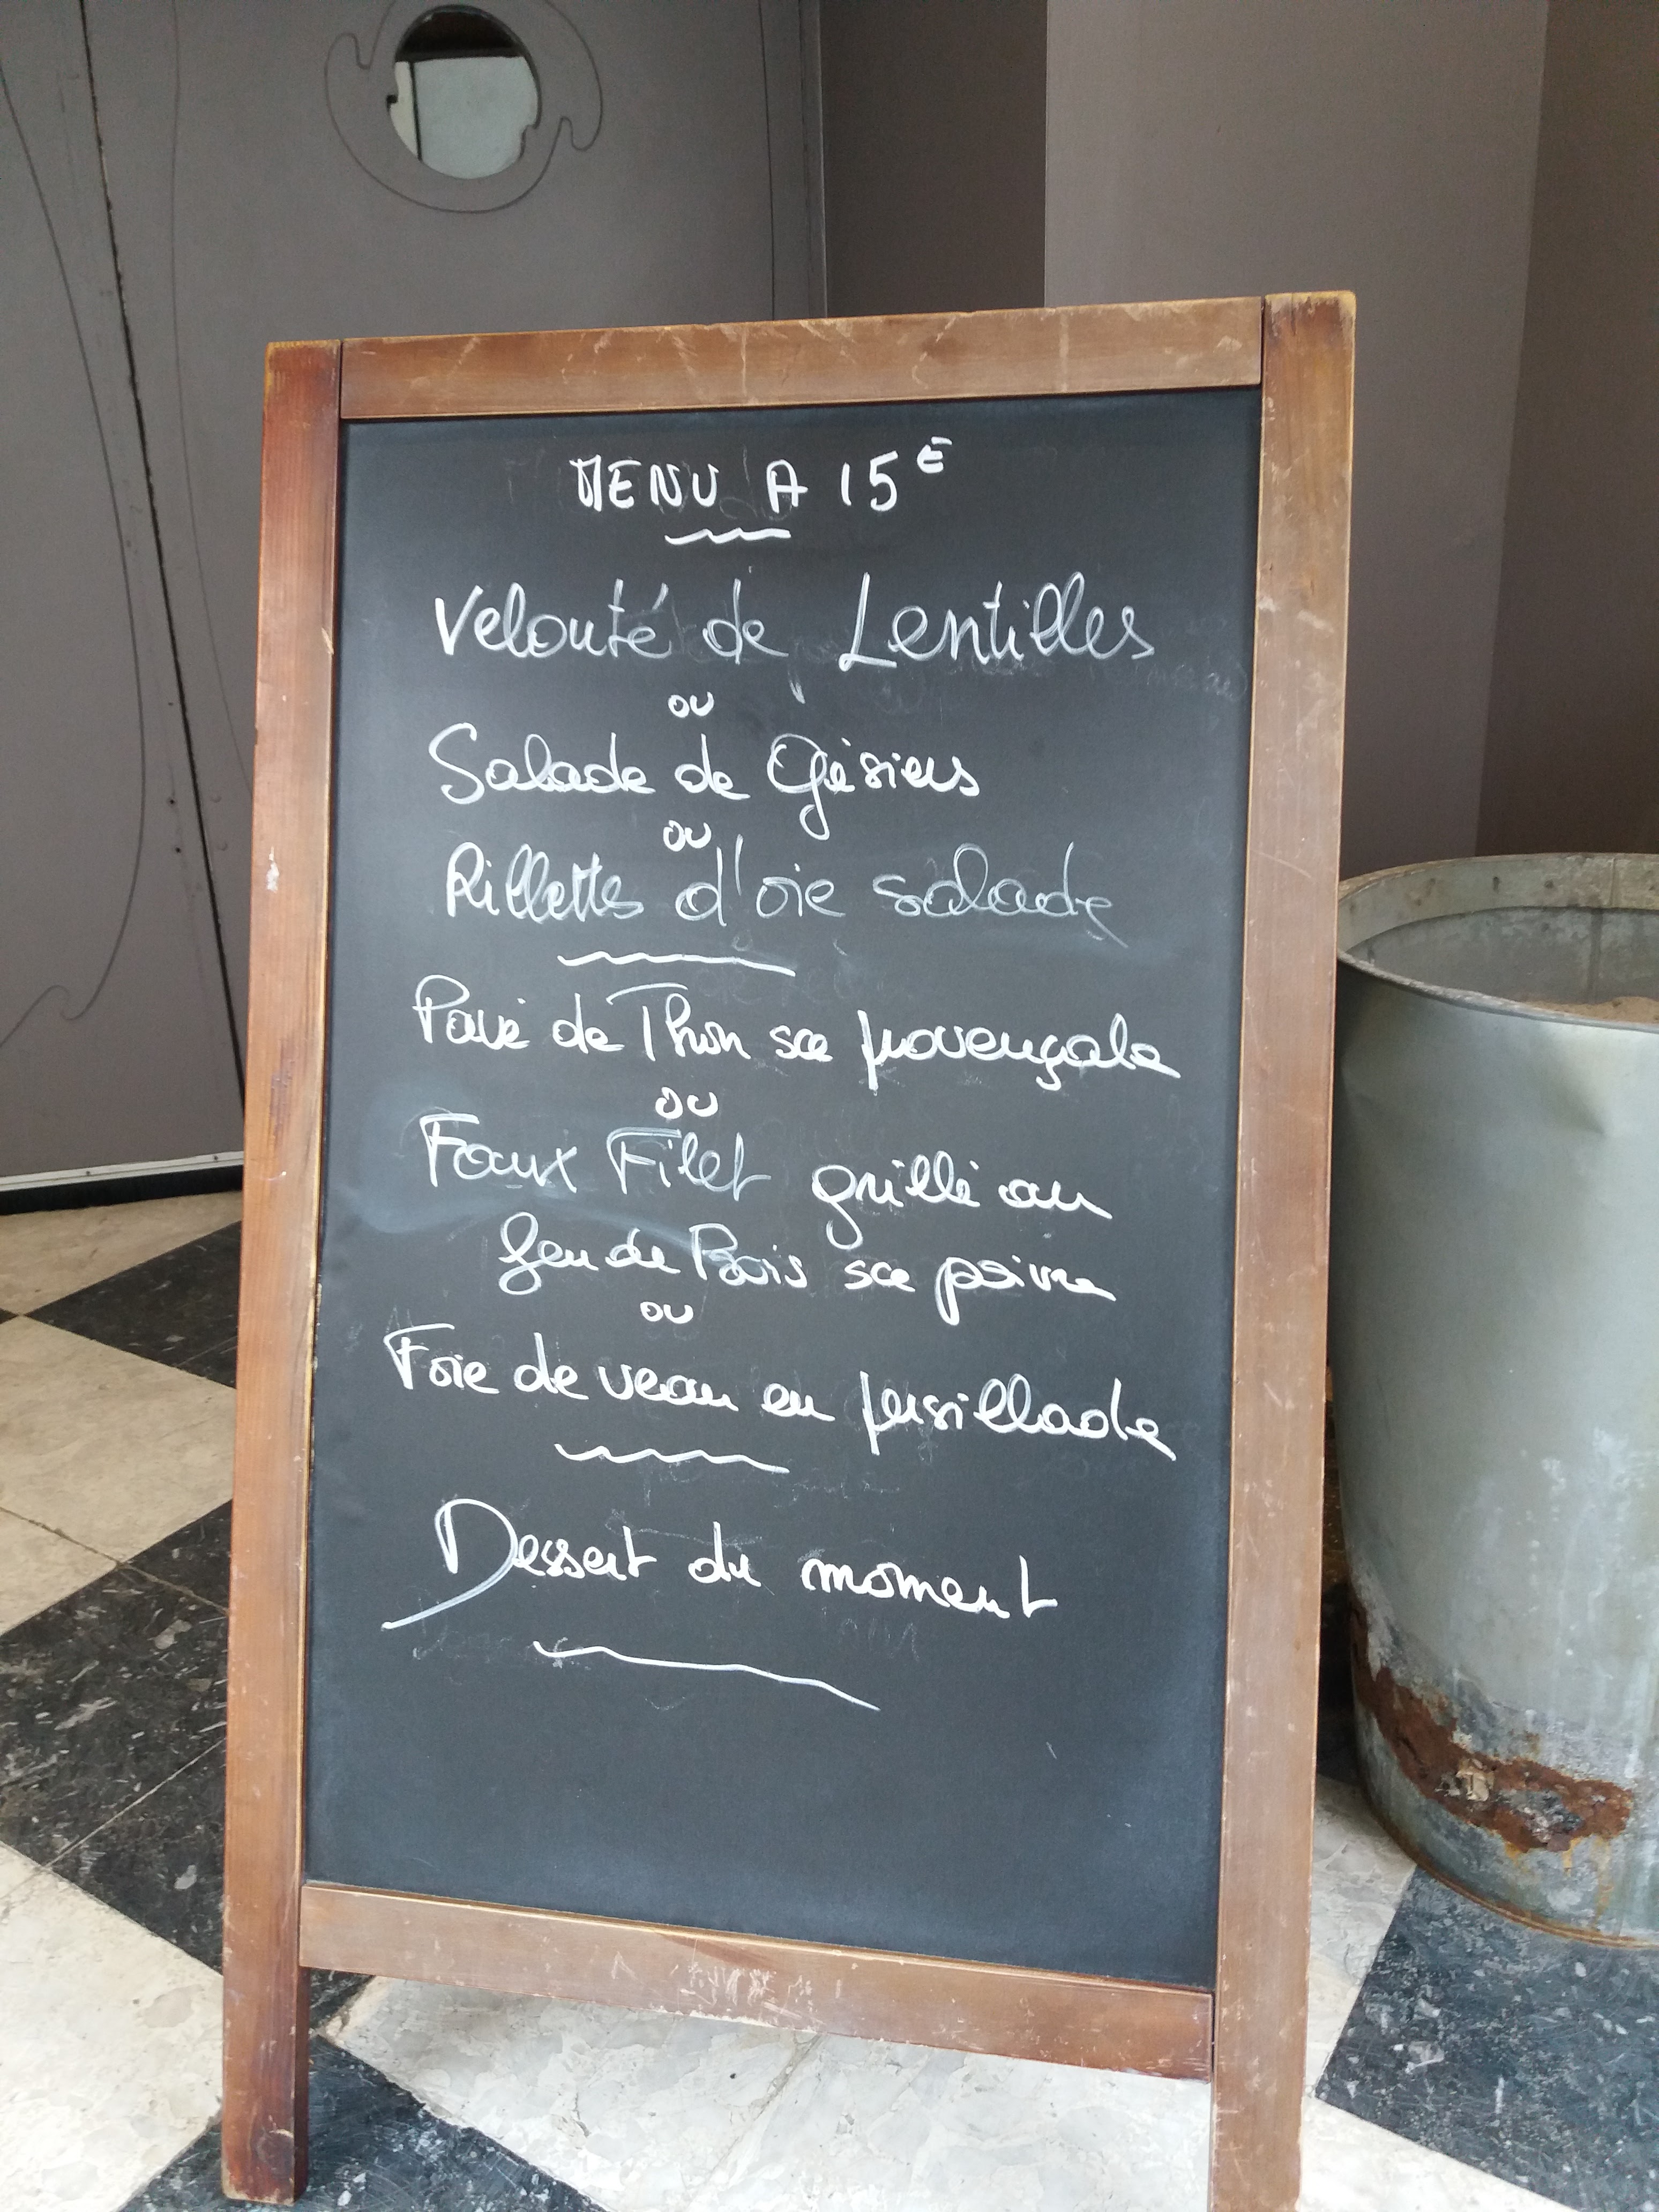 MENU A 15€
Velouté de Lentilles
ou
Salade de Gésiers
ou
Rillettes d'oie salade
Pavé de Thon sce provençale
ou
Faux Filet grillé au
feu de Bois sce poivre
ou
Foie de veau en persillade
Dessert du moment